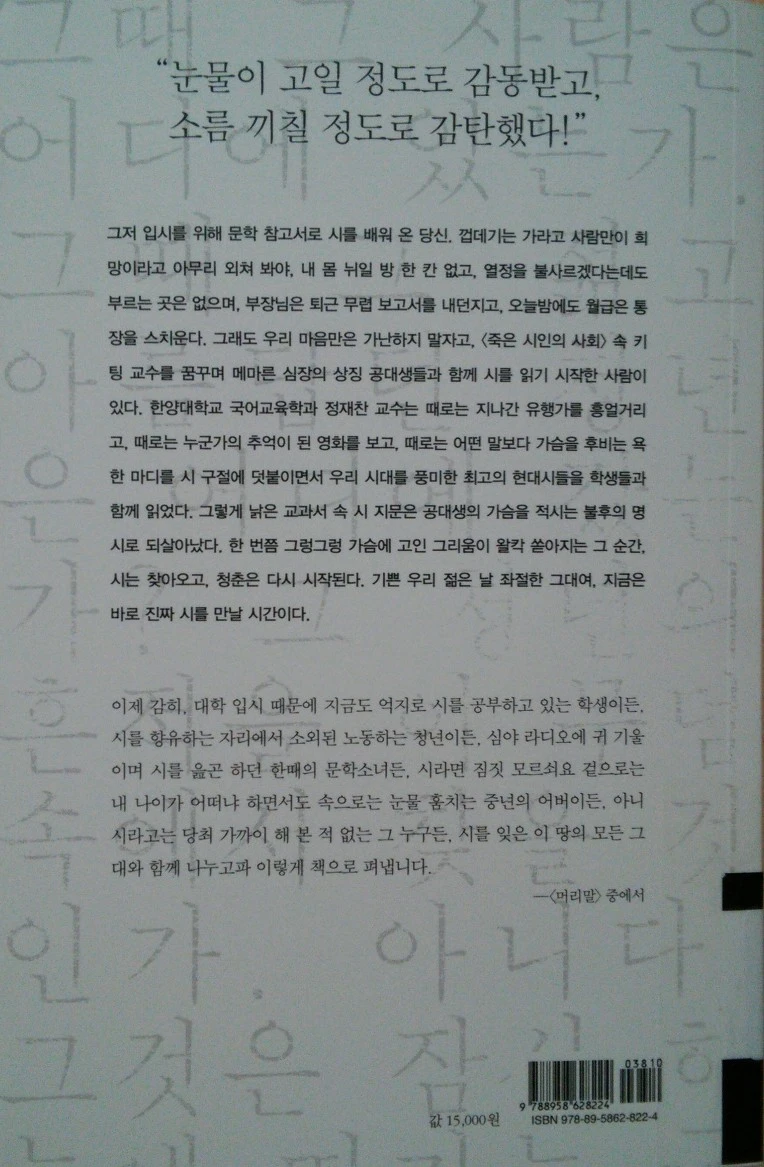 “눈물이 고일 정도로 감동받고,
소름 끼칠 정도로 감탄했다!”
그저 입시를 위해 문학 참고서로 시를 배워 온 당신. 껍데기는 가라고 사람만이 희
망이라고 아무리 외쳐 봐야, 내 몸 뉘일 방 한 칸 없고, 열정을 불사르겠다는데도
부르는 곳은 없으며, 부장님은 퇴근 무렵 보고서를 내던지고, 오늘밤에도 월급은 통
장을 스치운다. 그래도 우리 마음만은 가난하지 말자고, 〈죽은 시인의 사회〉 속 키
팅 교수를 꿈꾸며 메마른 심장의 상징 공대생들과 함께 시를 읽기 시작한 사람이
있다. 한양대학교 국어교육학과 정재찬 교수는 때로는 지나간 유행가를 흥얼거리
고, 때로는 누군가의 추억이 된 영화를 보고, 때로는 어떤 말보다 가슴을 후비는 욕
한 마디를 시 구절에 덧붙이면서 우리 시대를 풍미한 최고의 현대시들을 학생들과
함께 읽었다. 그렇게 낡은 교과서 속 시 지문은 공대생의 가슴을 적시는 불후의 명
시로 되살아났다. 한 번쯤 그렁그렁 가슴에 고인 그리움이 왈칵 쏟아지는 그 순간,
시는 찾아오고, 청춘은 다시 시작된다. 기쁜 우리 젊은 날 좌절한 그대여, 지금은
바로 진짜 시를 만날 시간이다.
이제 감히, 대학 입시 때문에 지금도 억지로 시를 공부하고 있는 학생이든,
시를 향유하는 자리에서 소외된 노동하는 청년이든, 심야 라디오에 귀 기울
이며 시를 읊곤 하던 한때의 문학소녀든, 시라면 짐짓 모르쇠요 겉으로는
내 나이가 어떠냐 하면서도 속으로는 눈물 훔치는 중년의 어버이든, 아니
시라고는 당최 가까이 해 본 적 없는 그 누구든, 시를 잊은 이 땅의 모든 그
대와 함께 나누고파 이렇게 책으로 펴냅니다.
―〈머리말〉 중에서
03810
9 788958 628224
값 15,000원
ISBN 978-89-5862-822-4